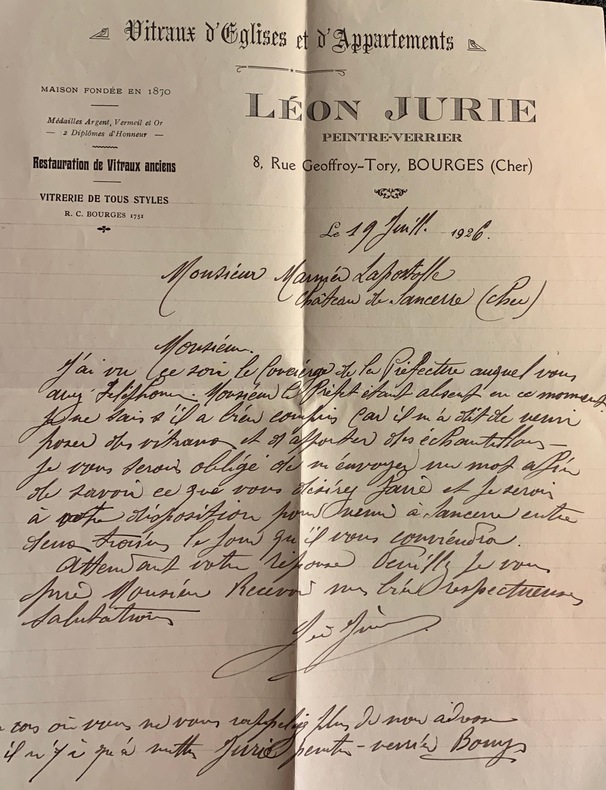 Vitraux d'Eglises et d'Appartements
MAISON FONDÉE EN 1870
Médailles Argent, Vermeil et Or
— 2 Diplômes d'Honneur —
Restauration de Vitraux anciens
VITRERIE DE TOUS STYLES
R. C. BOURGES 1751
LÉON JURIE
PEINTRE-VERRIER
8, Rue Geoffroy-Tory, BOURGES (Cher)
Le 19 Juill. 1926.
Monsieur Marnier Lapostolle
Château de Sancerre (Cher)
Monsieur.
J'ai vu ce soir le Concierge de la Préfecture auquel vous
avez Téléphoné Monsieur le Préfet étant absent en ce moment
je ne sais s'il a bien compris car il m'a dit de venir
poser des vitraux et d'apporter des échantillons —
je vous serais obligé de m'envoyer un mot afin
de savoir ce que vous désirez faire et je serais
à votre disposition pour venir à Sancerre entre
deux trains le jour qu'il vous conviendra.
Attendant votre réponse Veuillez je vous
prie Monsieur Recevoir mes bien respectueuses
Salutations
cas où vous ne vous rappeliez plus de mon adresse
il n'y a qu'à mettre Jurie peintre-verrier Bourges